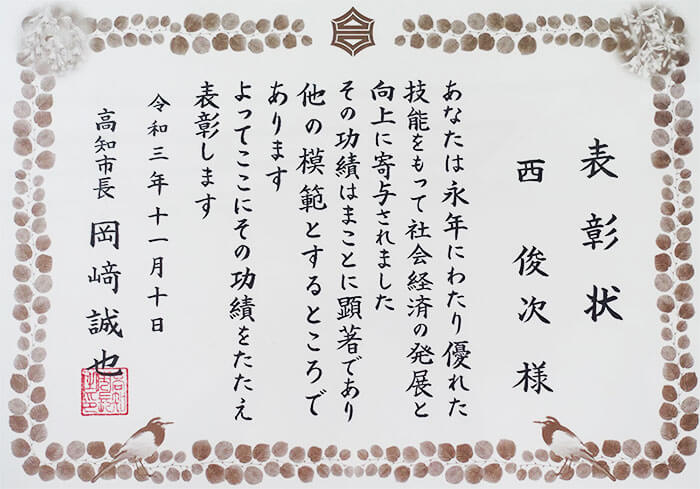 表彰状
西 俊次 様
あなたは永年にわたり優れた
技能をもって社会経済の発展と
向上に寄与されました
その功績はまことに顕著であり
他の模範とするところで
あります
よってここにその功績をたたえ
表彰します
令和三年十一月十日
高知市長 岡﨑誠也
高知市長之印